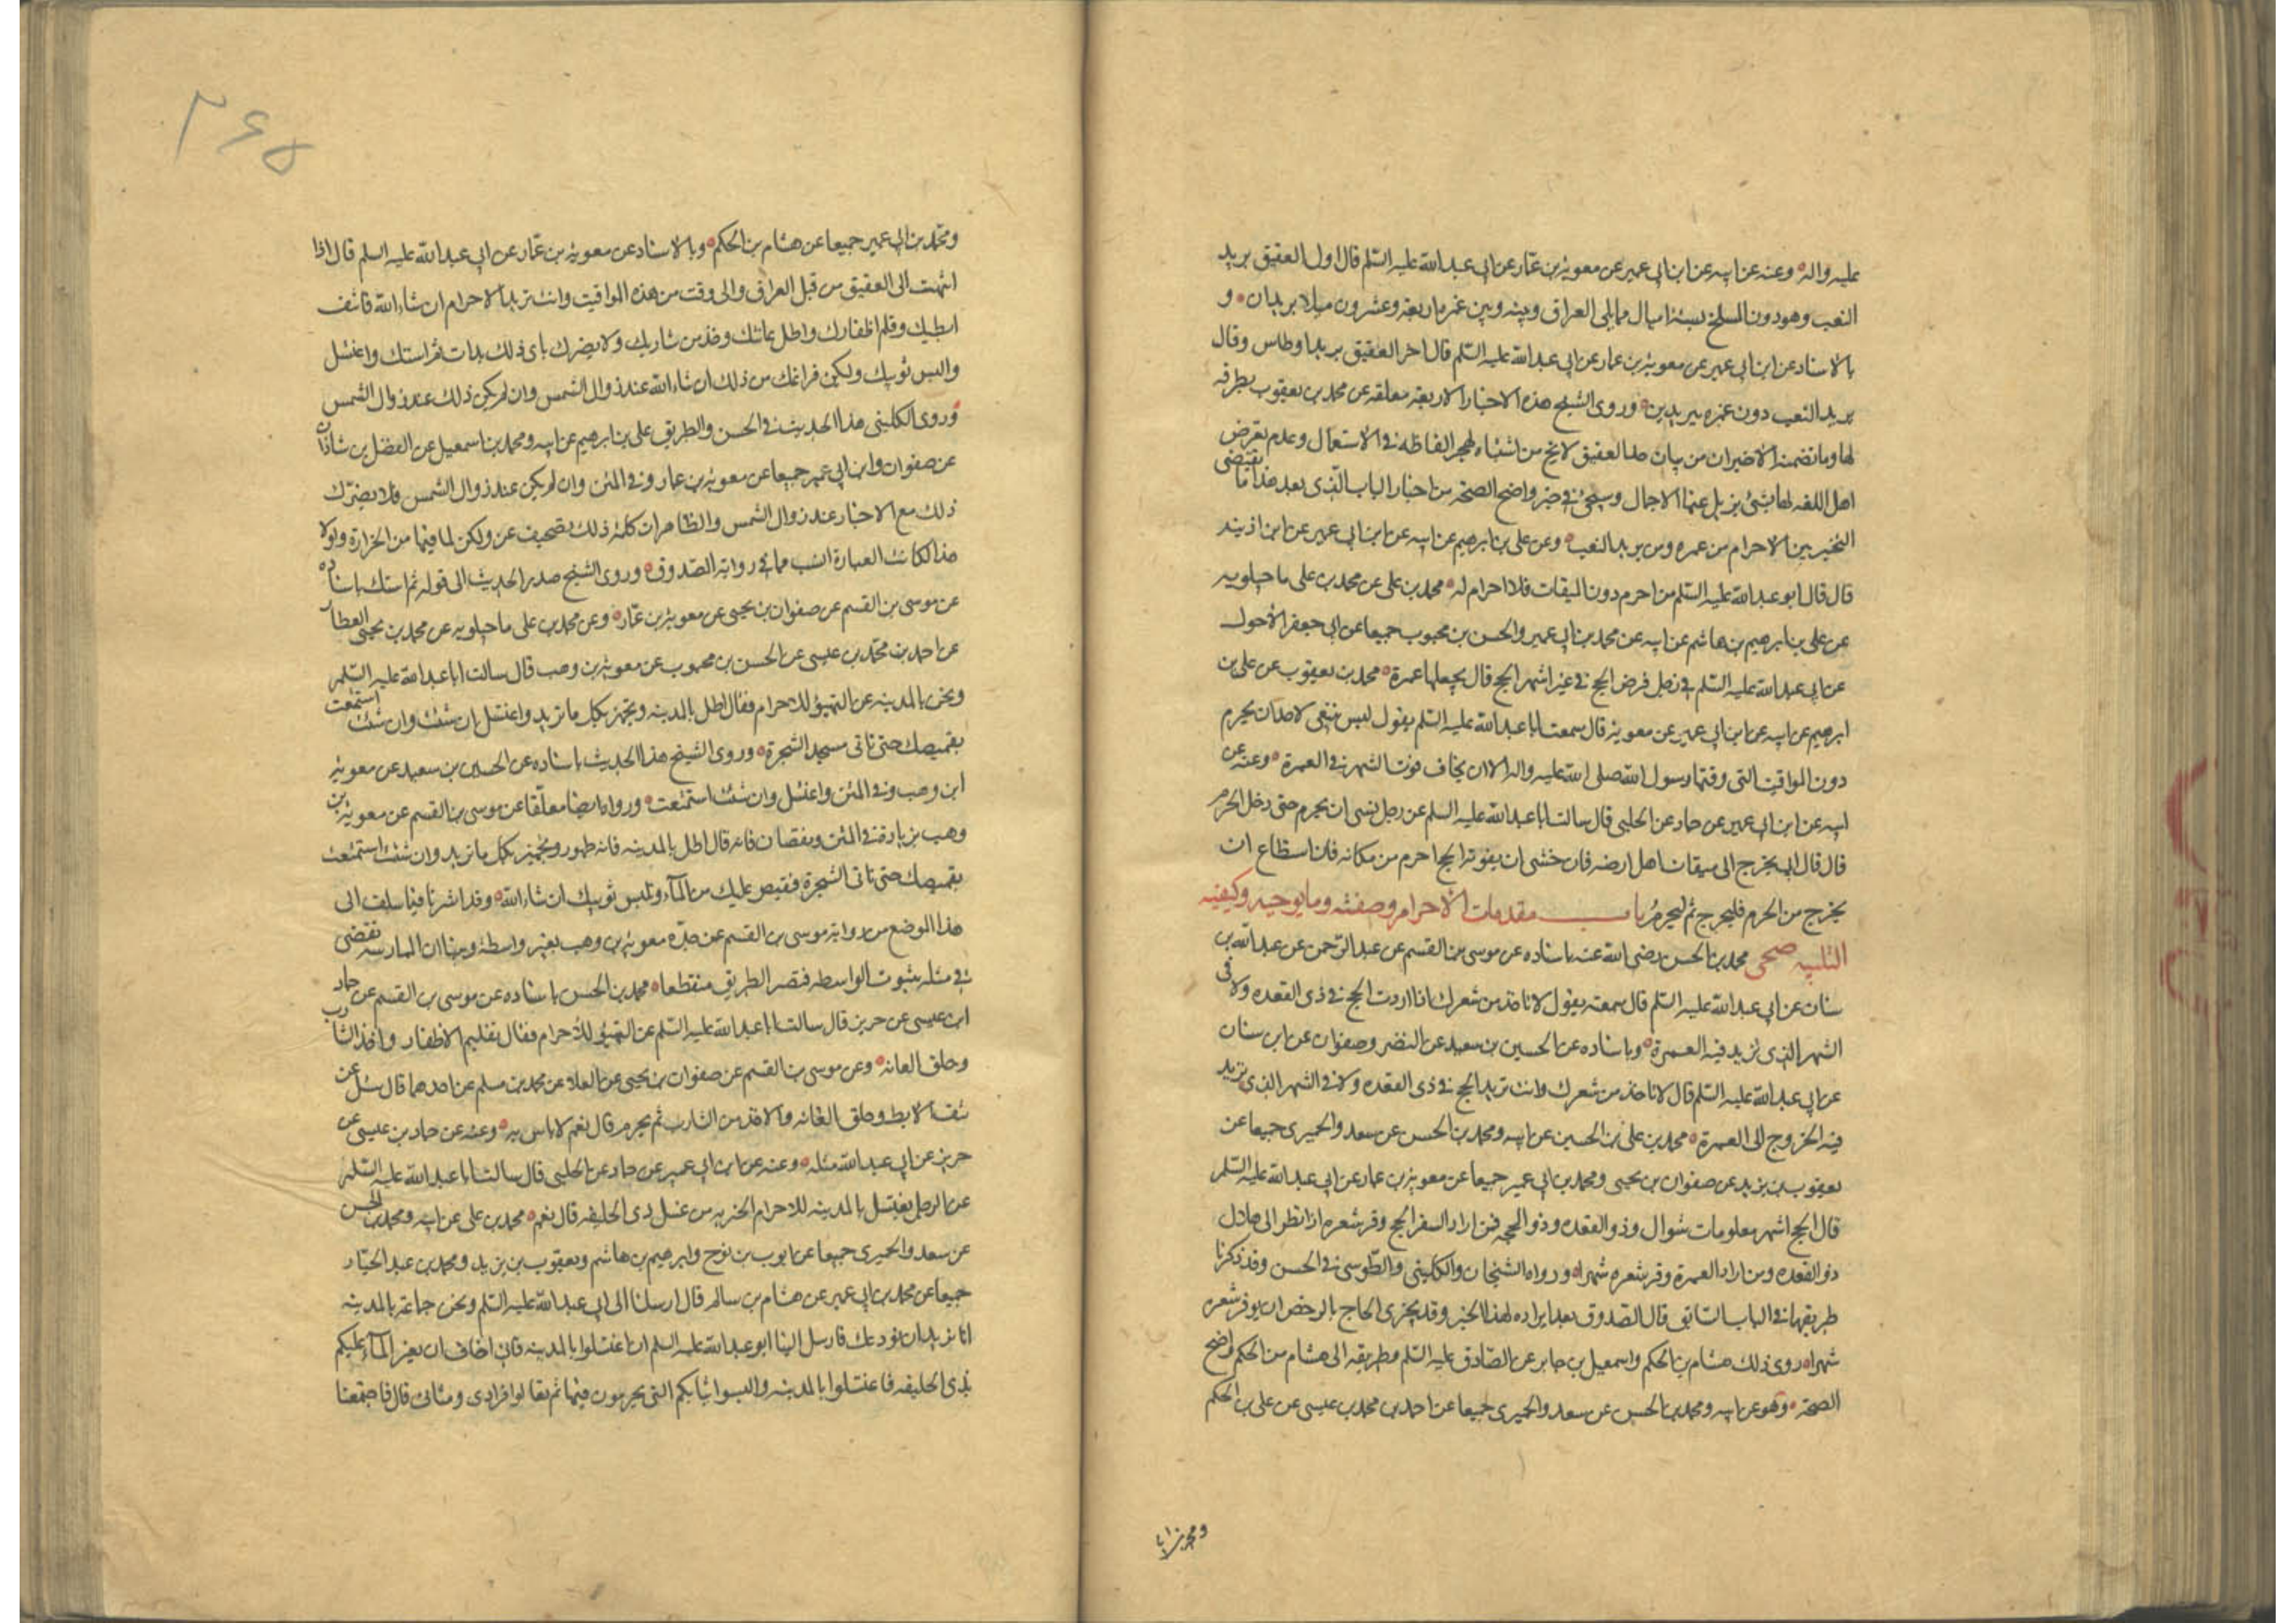 عليه واله وعنه عن ابيه عن ابن ابي عمير عن معوية بن عمار عن ابي عبد الله عليه السلم قال اول العقيق بريد
البعث وهو دون المسلخ بستة اميال مما يلي العراق وبينه وبين غمرة اربعة وعشرون ميلا بريدان و
بالاسناد عن ابن ابي عمير عن معوية بن عمار عن ابي عبد الله عليه السلم قال اخر العقيق بريد اوطاس وقال
بريد البعث دون غمره ببريدين وروى الشيخ هذه الاخبار الاربعة معلقه عن محمد بن يعقوب بطرقه
لها وما تضمنه الاخيران من بيان حد العقيق لا يخ من اشتباه لهجر الفاظه في الاستعمال وعدم تعرض
اهل اللغه لها بشئ يزيل عنها الاجمال وسيجئ في خبر واضح الصحة من اخبار الباب الذي بعد هذا ما يقتضي
التخيير بين الاحرام من غمره ومن بريد البعث وعن علي بن ابرهيم عن ابيه عن ابن ابي عمير عن ابن اذينه
قال قال ابو عبد الله عليه السلم من احرم دون الميقات فلا احرام له محمد بن علي عن محمد بن علي ماجيلويه
عن علي بن ابرهيم بن هاشم عن ابيه عن محمد بن ابي عمير والحسن بن محبوب جميعا عن ابي جعفر الاحول
عن ابي عبد الله عليه السلم في رجل فرض الحج في غير اشهر الحج قال يجعلها عمرة محمد بن يعقوب عن علي بن
ابرهيم عن ابيه عن ابن ابي عمير عن معوية قال سمعت ابا عبد الله عليه السلم يقول ليس ينبغي لاحد ان يحرم
دون المواقيت التي وقتها رسول الله صلى الله عليه واله الا ان يخاف فوت الشهر في العمرة وعنه عن
ابيه عن ابن ابي عمير عن حماد عن الحلبي قال سالت ابا عبد الله عليه السلم عن رجل نسى ان يحرم حتى دخل الحرم
قال قال ابي يخرج الى ميقات اهل ارضه فان خشى ان يفوته الحج احرم من مكانه فان استطاع ان
يخرج من الحرم فليخرج ثم ليحرم باب مقدمات الاحرام وصفته وما يوجبه وكيفيه
التلبيه صحى محمد بن الحسن رضى الله عنه باسناده عن موسى بن القسم عن عبد الرحمن عن عبد الله بن
سنان عن ابي عبد الله عليه السلم قال سمعته يقول لا تاخذ من شعرك اذا اردت الحج في ذي القعده ولا في
الشهر الذي تريد فيه العمرة وباسناده عن الحسين بن سعيد عن النضر وصفوان عن ابن سنان
عن ابي عبد الله عليه السلم قال لا تاخذ من شعرك وانت تريد الحج في ذي القعده ولا في الشهر الذي تريد
فيه الخروج الى العمرة محمد بن علي بن الحسين عن ابيه ومحمد بن الحسن عن سعد والحميري جميعا عن
يعقوب بن يزيد عن صفوان بن يحيى ومحمد بن ابي عمير جميعا عن معوية بن عمار عن ابي عبد الله عليه السلم
قال الحج اشهر معلومات شوال وذو القعده وذو الحجه فمن اراد السفر الحج وفر شعره اذا نظر الى هلال
ذو القعده ومن اراد العمرة وفر شعره شهرا ورواه الشيخان والكليني والطوسي في الحسن وقد ذكرنا
طريقهما في الباب السابق قال الصدوق بعد ايراده لهذا الخبر وقد يجزي الحاج بالرخص ان يوفر شعره
شهرا روى ذلك هشام بن الحكم واسمعيل بن جابر عن الصادق عليه السلم وطريقه الى هشام من الحكم واضح
الصحة وهو عن ابيه ومحمد بن الحسن عن سعد والحميري جميعا عن احمد بن محمد بن عيسى عن علي بن الحكم
ومحمد بن ابي
٢٦٥
ومحمد بن ابي عمير جميعا عن هشام بن الحكم وبالاسناد عن معوية بن عمار عن ابي عبد الله عليه السلم قال اذا
انتهيت الى العقيق من قبل العراق والى وقت من هذه المواقيت وانت تريد الاحرام ان شاء الله فانتف
ابطيك وقلم اظفارك واطل عانتك وخذ من شاربك ولا يضرك باي ذلك بدات ثم استك واغتسل
والبس ثوبيك وليكن فراغك من ذلك ان شاء الله عند زوال الشمس وان لم يكن ذلك عند زوال الشمس
وروى الكليني هذا الحديث في الحسن والطريق علي بن ابرهيم عن ابيه ومحمد بن اسمعيل عن الفضل بن شاذان
عن صفوان وابن ابي عمير جميعا عن معوية بن عمار وفي المتن وان لم يكن عند زوال الشمس فلا يضرك
ذلك مع الاخبار عند زوال الشمس والظاهر ان كلمة ذلك تصحيف عن ولكن لما فيها من الحزازة ولولا
هذا لكانت العبارة انسب مما في رواية الصدوق وروى الشيخ صدر الحديث الى قوله ثم استك باسناده
عن موسى بن القسم عن صفوان بن يحيى عن معوية بن عمار وعن محمد بن علي ماجيلويه عن محمد بن يحيى العطار
عن احمد بن محمد بن عيسى عن الحسن بن محبوب عن معوية بن وهب قال سالت ابا عبد الله عليه السلم
ونحن بالمدينه عن التهيؤ للاحرام فقال اطل بالمدينه وتجهز بكل ما تريد واغتسل ان شئت وان شئت استمتعت
بقميصك حتى تاتي مسجد الشجرة وروى الشيخ هذا الحديث باسناده عن الحسين بن سعيد عن معوية
ابن وهب وفي المتن واغتسل وان شئت استمتعت ورواه ايضا معلقا عن موسى بن القسم عن معوية بن
وهب بزيادة في المتن ونقصان فانه قال اطل بالمدينه فانه طهور وتجهز بكل ما تريد وان شئت استمتعت
بقميصك حتى تاتي الشجرة فتفيض عليك من الماء وتلبس ثوبيك ان شاء الله وقد اشرنا فيما سلف الى
هذا الموضع من رواية موسى بن القسم عن جده معوية بن وهب بغير واسطة وبينا ان الممارسه تقتضي
في مثله بثبوت الواسطه فتصير الطريق منقطعا محمد بن الحسن باسناده عن موسى بن القسم عن حماد
ابن عيسى عن حريز قال سالت ابا عبد الله عليه السلم عن التهيؤ للاحرام فقال تقليم الاظفار واخذ الشارب
وحلق العانه وعن موسى بن القسم عن صفوان بن يحيى عن العلا عن محمد بن مسلم عن احدهما قال سئل عن
نتف الابط وحلق العانه والاخذ من الشارب ثم يحرم قال نعم لا باس به وعنه عن حماد بن عيسى عن
حريز عن ابي عبد الله مثله وعنه عن ابن ابي عمير عن حماد عن الحلبي قال سالت ابا عبد الله عليه السلم
عن الرجل يغتسل بالمدينه للاحرام ايجزيه من غسل ذي الحليفه قال نعم محمد بن علي عن ابيه ومحمد بن الحسن
عن سعد والحميري جميعا عن ايوب بن نوح وابرهيم بن هاشم ويعقوب بن يزيد ومحمد بن عبد الجبار
جميعا عن محمد بن ابي عمير عن هشام بن سالم قال ارسلنا الى ابي عبد الله عليه السلم ونحن جماعة بالمدينه
انا نريد ان نودعك فارسل الينا ابو عبد الله عليه السلم ان اغتسلوا بالمدينه فاني اخاف ان يعز الماء عليكم
بذي الحليفه فاغتسلوا بالمدينه والبسوا ثيابكم التي تحرمون فيها ثم تعالوا فرادى ومثاني قال فاجتمعنا